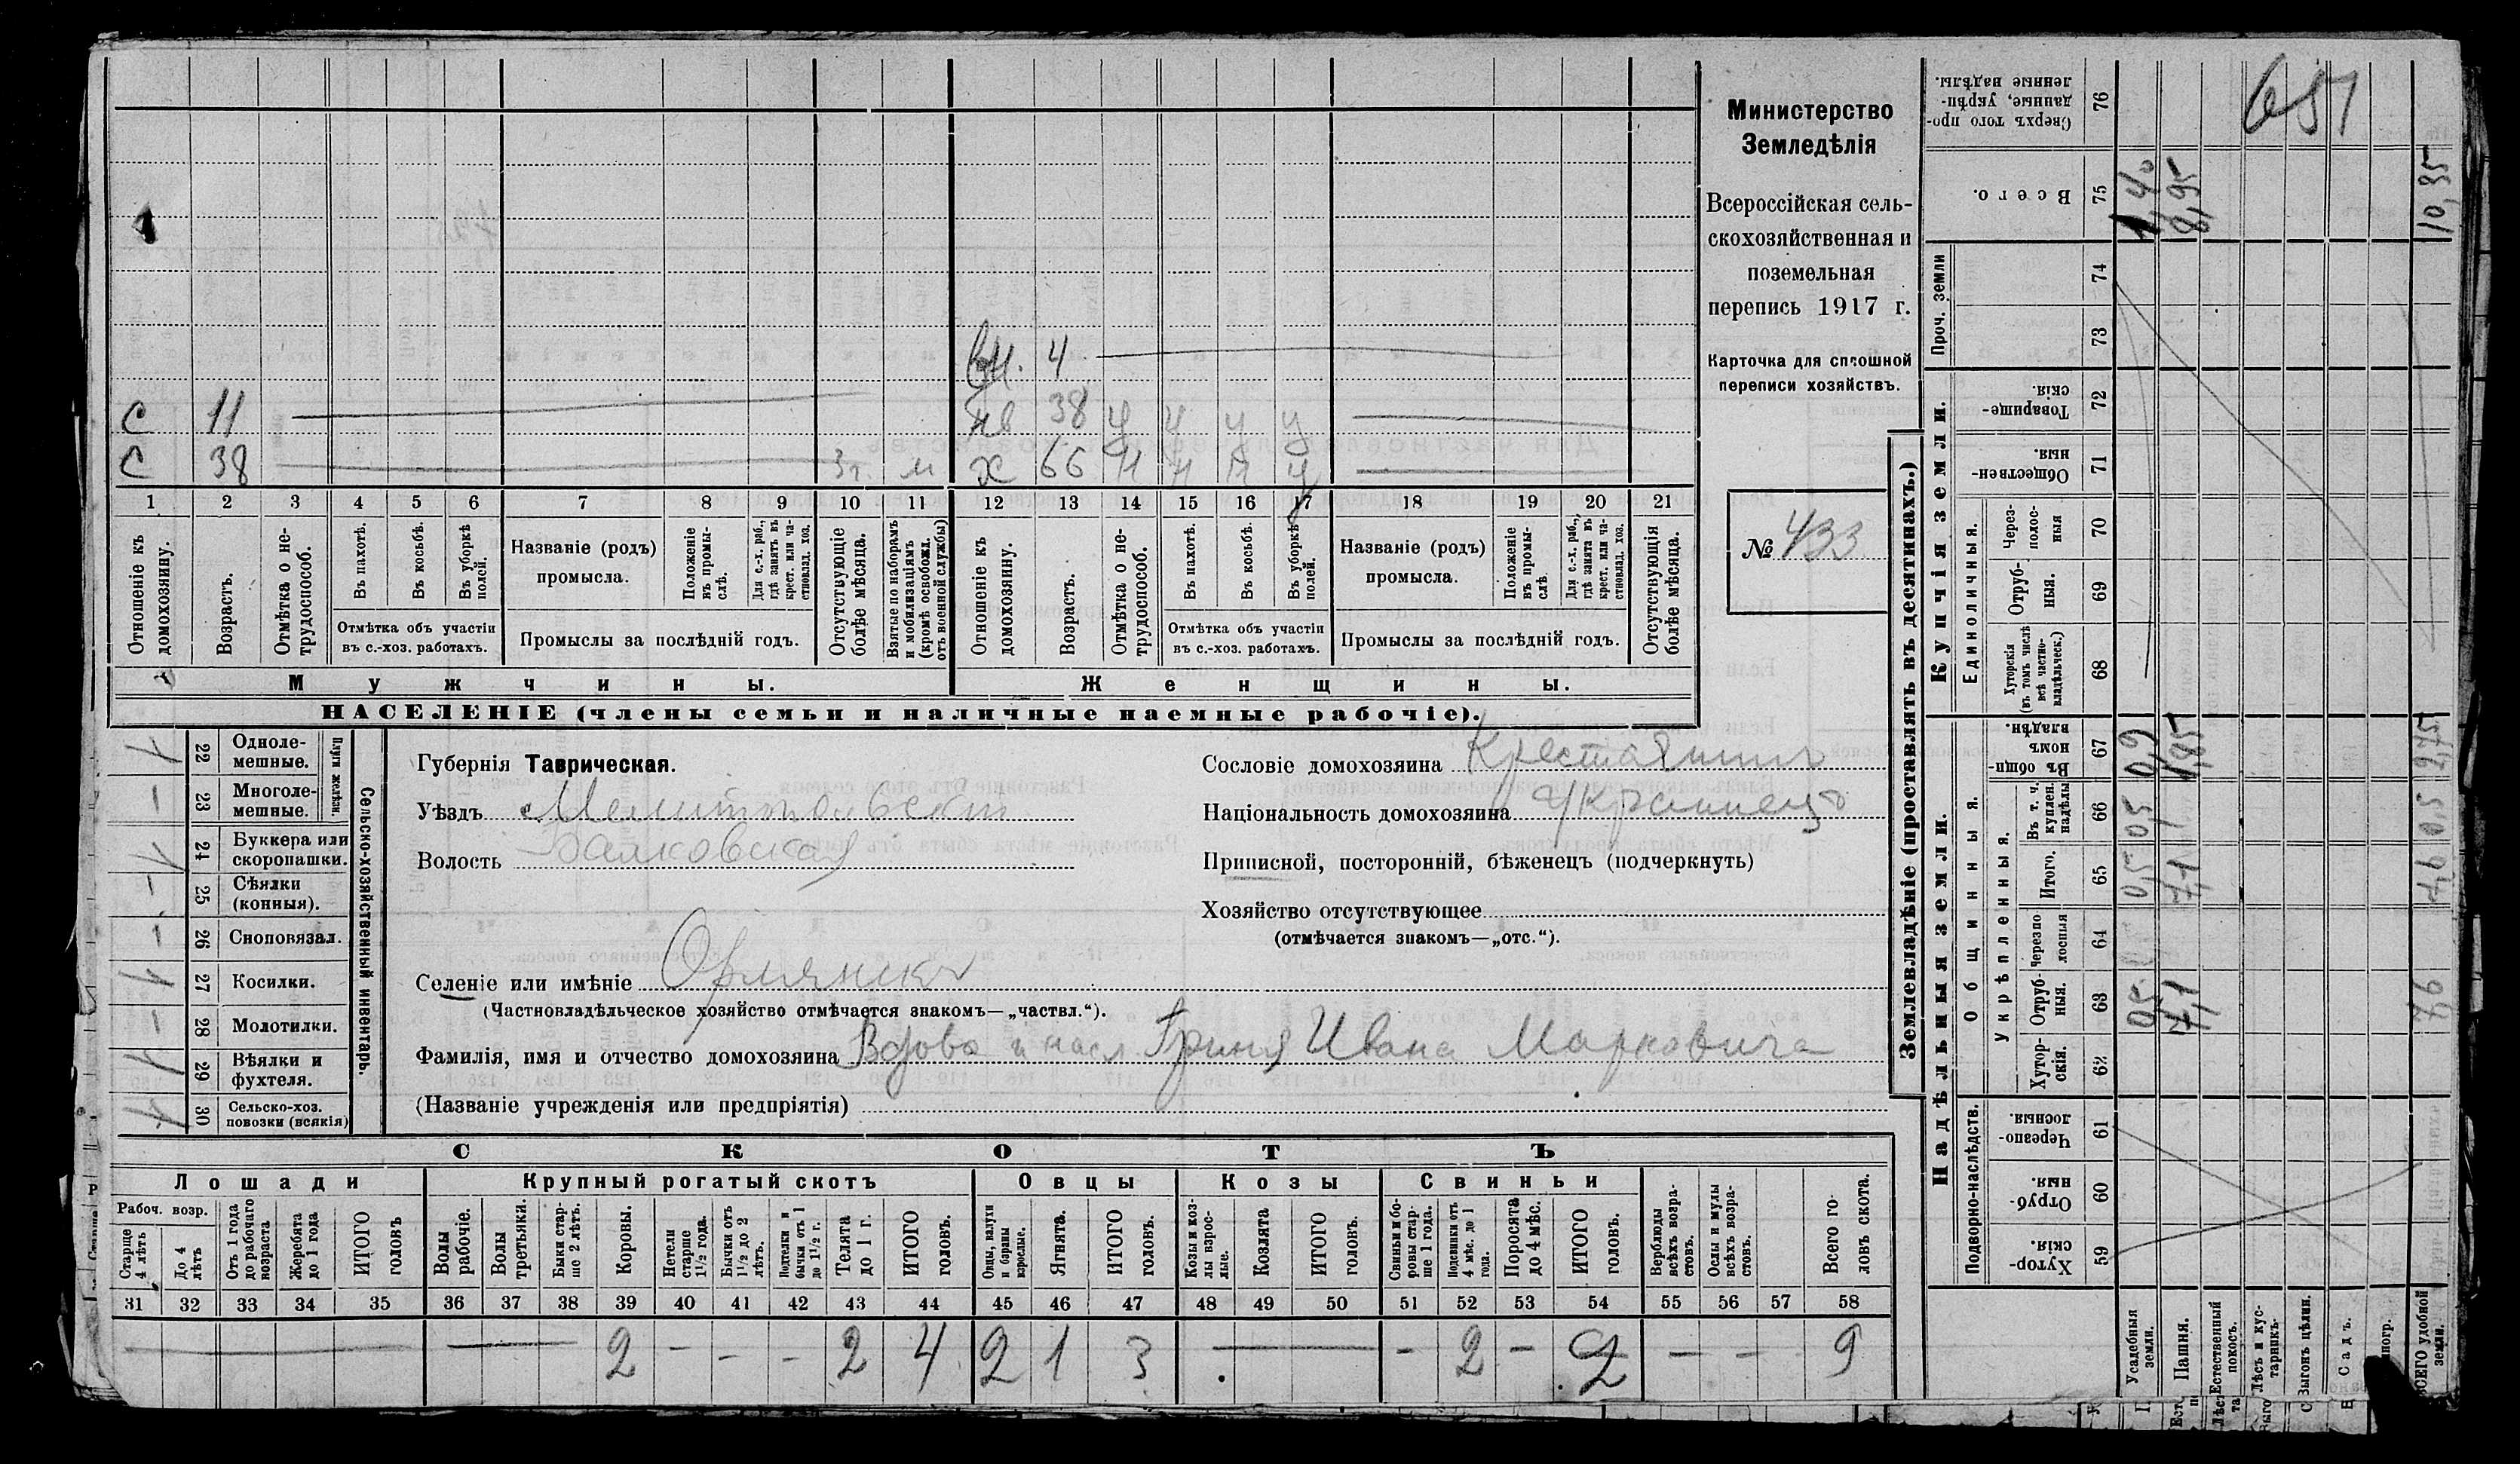 Министерство
Земледѣлія
Всероссійская сель-
скохозяйственная и
поземельная
перепись 1917 г.
Карточка для сплошной
переписи хозяйствъ.
№ 433
651
вн. 4
С 11
нв 38 ч ч ч ч
С 38 3 г. м х 66 н н н ч
1 2 3 4 5 6 7 8 9 10 11 12 13 14 15 16 17 18 19 20 21
Отношеніе къ домохозяину.
Возрастъ.
Отмѣтка о не-трудоспособ.
Въ пахотѣ.
Въ косьбѣ.
Въ уборкѣ полей.
Отмѣтка объ участіи
въ с.-хоз. работахъ.
Названіе (родъ)
промысла.
Положеніе въ промы-слѣ.
Для с.-х. раб., гдѣ занятъ въ крест. или ча-стновлад. хоз.
Промыслы за послѣдній годъ.
Отсутствующіе болѣе мѣсяца.
Взятые по наборамъ и мобилизаціямъ (кромѣ освобожд. отъ военной службы)
Отношеніе къ домохозяину.
Возрастъ.
Отмѣтка о не-трудоспособ.
Въ пахотѣ.
Въ косьбѣ.
Въ уборкѣ полей.
Отмѣтка объ участіи
въ с.-хоз. работахъ.
Названіе (родъ)
промысла.
Положеніе въ промы-слѣ.
Для с.-х. раб., гдѣ занята въ крест. или ча-стновлад. хоз.
Промыслы за послѣдній годъ.
Отсутствующія болѣе мѣсяца.
Мужчины.
Женщины.
НАСЕЛЕНІЕ (члены семьи и наличные наемные рабочіе).
Сельско-хозяйственный инвентарь.
Плуги желѣзн.
1 22 Одноле-мешные.
— 23 Многоле-мешные.
1 24 Буккера или скоропашки.
— 25 Сѣялки (конныя).
— 26 Сноповязал.
1 27 Косилки.
— 28 Молотилки.
1 29 Вѣялки и фухтеля.
1 30 Сельско-хоз. повозки (всякія)
Губернія Таврическая.
Уѣздъ Мелитопольскій
Волость Балковская
Сословіе домохозяина Крестьянинъ
Національность домохозяина Украинецъ
Приписной, посторонній, бѣженецъ (подчеркнуть)
Хозяйство отсутствующее
(отмѣчается знакомъ—„отс.“).
Селеніе или имѣніе Орлянскъ
(Частновладѣльческое хозяйство отмѣчается знакомъ—„частвл.“).
Фамилія, имя и отчество домохозяина Вдова и насл. Гриня Ивана Марковича
(Названіе учрежденія или предпріятія)
СКОТЪ
Лошади Крупный рогатый скотъ Овцы Козы Свиньи
Рабоч. возр.
Старше 4 лѣтъ
До 4 лѣтъ
Отъ 1 года до рабочаго возраста
Жеребята до 1 года
ИТОГО головъ
Волы рабочіе.
Волы третьяки.
Быки стар-ше 2 лѣтъ.
Коровы.
Нетели старше 1½ года.
Бычки отъ 1½ до 2 лѣтъ.
Подтелки и бычки отъ 1 до 1½ г.
Телята до 1 г.
ИТОГО головъ.
Овцы, валухи и бараны взрослые.
Ягнята.
ИТОГО головъ.
Козы и коз-лы взрос-лые.
Козлята
ИТОГО головъ.
Свиньи и бо-ровы стар-ше 1 года.
Подсвинки отъ 4 мѣс. до 1 года.
Поросята до 4 мѣс.
ИТОГО головъ.
Верблюды всѣхъ возра-стовъ.
Ослы и мулы всѣхъ возра-стовъ.
Всего го-ловъ скота.
31 32 33 34 35 36 37 38 39 40 41 42 43 44 45 46 47 48 49 50 51 52 53 54 55 56 57 58
— — 2 — — — 2 4 2 1 3 — — 2 — 2 — — 9
Землевладѣніе (проставлять въ десятинахъ.)
Надѣльныя земли.
Купчія земли.
Проч. земли
Подворно-наслѣдств.
Общинныя.
Укрѣпленныя.
Единоличныя.
59 Хутор-скія.
60 Отруб-ныя.
61 Черезпо-лосныя.
62 Хутор-скія.
63 Отруб-ныя. 0,5 7,1 7,6
64 Черезпо-лосныя
65 Итого. 0,5 7,1 7,6
66 Въ т. ч. куплен. надѣлы 0,5 0,5
67 Въ общин-номъ владѣн. 0,9 1,85 2,75
68 Хуторскія (въ томъ числѣ всѣ частно-владѣльческ.)
69 Отруб-ныя.
70 Через-полос-ныя
71 Обществен-ныя.
72 Товарище-скія.
73
74
75 Всего. 1,40 8,95 10,35
76 Сверхъ того про-данные, укрѣп-ленные надѣлы.
Усадебныя земли.
Пашня.
Естественный покосъ.
Лѣсъ и кус-тарникъ.
Выгонъ цѣлин.
Садъ.
ВСЕГО удобной земли.